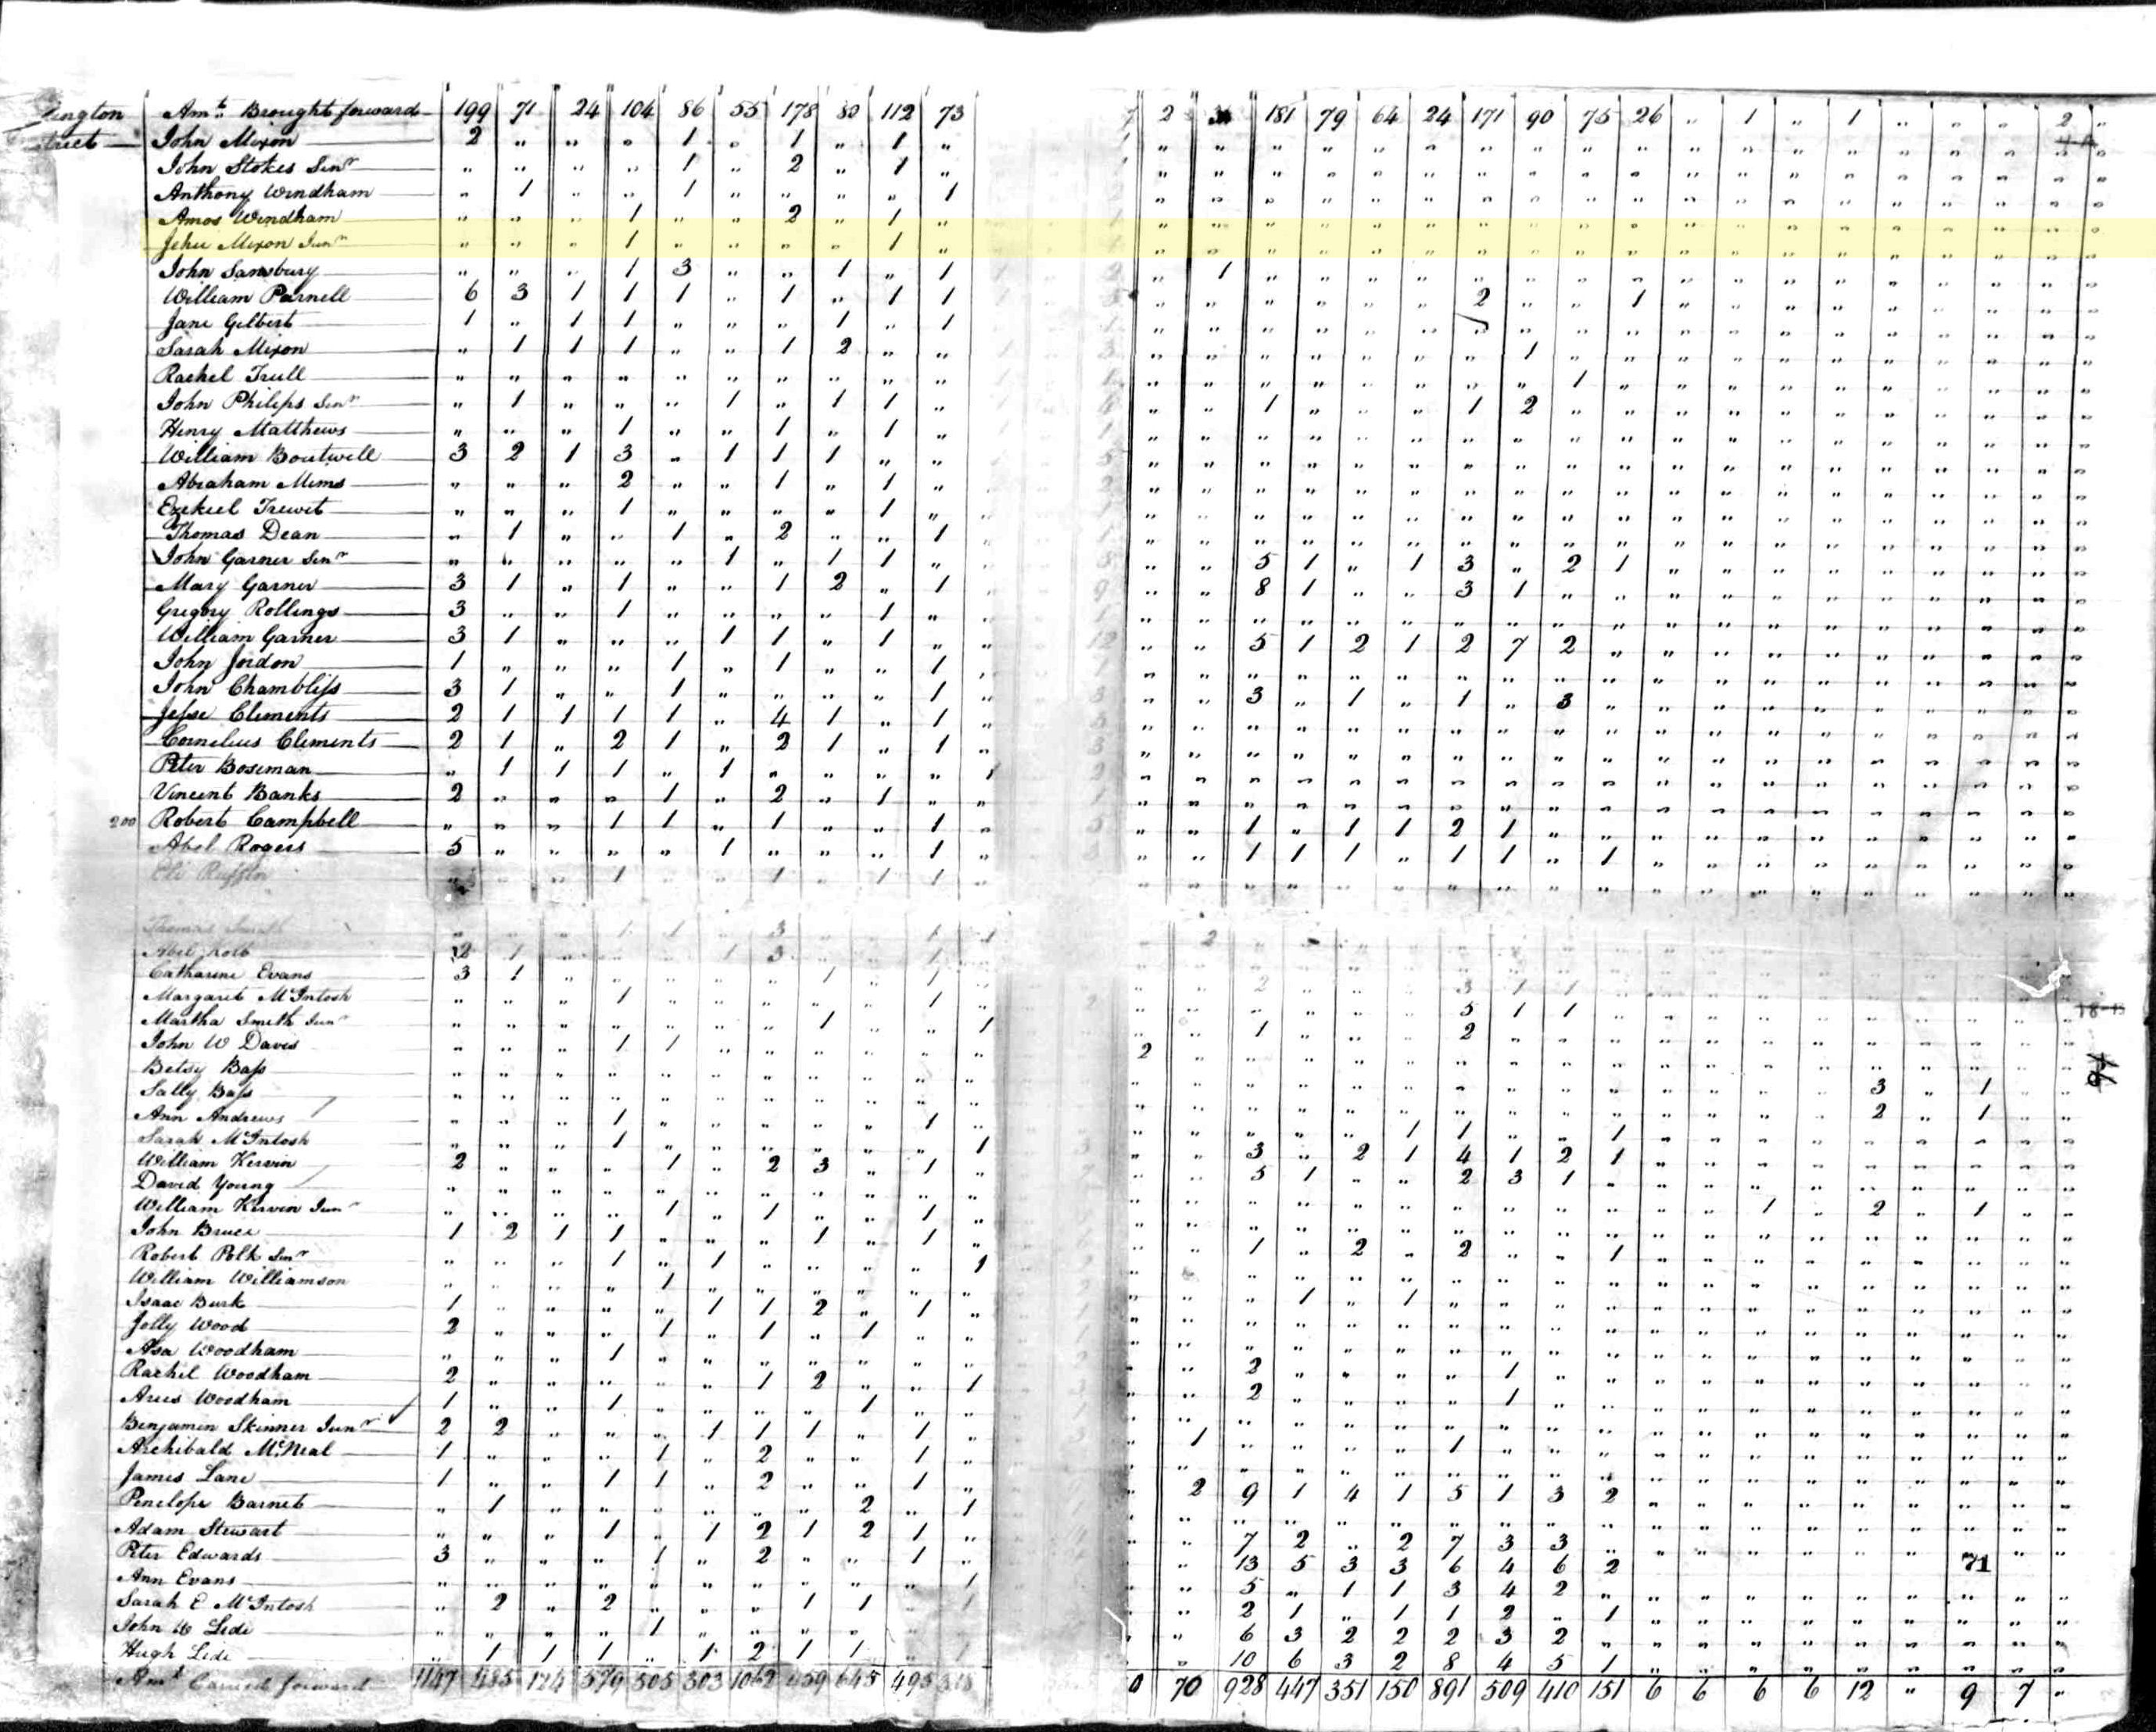 lington Amt Brought forward 199 71 24 104 86 55 178 80 112 73 7 2 181 79 64 24 171 90 75 26 " 1 " 1 " " " 2 "
trict John Mixon 2 " " " 1 " 1 " 1 "
John Stokes Senr " " " " 1 " 2 " 1 "
Anthony Windham " 1 " " 1 " " " " 1
Amos Windham " " " 1 " " 2 " 1 "
Jehu Mixon Junr " " " 1 " " " " 1 "
John Sansbury " " " 1 3 " " 1 " 1 " 1
William Parnell 6 3 1 1 1 " 1 " 1 1 2 " " 1
Jane Gilbert 1 " 1 1 " " " 1 " 1
Sarah Mixon " 1 1 1 " " 1 2 " " 1
Rachel Trull " " " " " " " " " " 1
John Philips Senr " 1 " " " 1 " 1 1 " 1 " " " 1 2
Henry Matthews " " " 1 " " 1 " 1 "
William Boutwell 3 2 1 3 " 1 1 1 " "
Abraham Mims " " " 2 " " 1 " 1 "
Ezekiel Trewit " " " 1 " " " " 1 "
Thomas Dean " 1 " " 1 " 2 " " 1
John Garner Senr " " " " " 1 " 1 1 " 5 1 " 1 3 " 2 1
Mary Garner 3 1 " 1 " " 1 2 " 1 8 1 " " 3 1
Gregory Rollings 3 " " 1 " " " " 1 "
William Garner 3 1 " " " 1 1 " 1 " 5 1 2 1 2 7 2
John Jordon 1 " " " 1 " 1 " " 1
John Chambliss 3 1 " " 1 " " " " 1 3 " 1 " 1 " 3
Jesse Clements 2 1 1 1 1 " 4 1 " 1
Cornelius Clements 2 1 " 2 1 " 2 1 " 1
Peter Boseman " 1 1 1 " 1 " " " " 1
Vincent Banks 2 " " " 1 " 2 " 1 "
200 Robert Campbell " " " 1 1 " 1 " " 1 1 " 1 1 2 1
Abel Rogers 5 " " " " 1 " " " 1 1 1 1 " 1 1 " 1
Eli Ruffin " " " 1 " " 1 " 1 1
Thomas Smith " " " 1 1 " 3 " " 1 1 2
Abel Kolb 2 1 " " " 1 3 " " 1
Catharine Evans 3 1 " " " " " 1 " 1 2 " " " 3 1 1
Margaret McIntosh " " " 1 " " " " " 1 5 1 1
Martha Smith Junr " " " " " " " 1 " " 1 1 " " " 2
John W Davis " " " 1 1 " " " " " 2
Betsy Bass " " " " " " " " " " 3 " 1
Sally Bass " " " " " " " " " " 2 " 1
Ann Andrews " " " 1 " " " " " 1 1 1 " " 1
Sarah McIntosh " " " 1 " " " " " " 1 3 " 2 1 4 1 2 1
William Kervin 2 " " " 1 " 2 3 " 1 5 1 " " 2 3 1
David Young " " " " " " " " " " 1 " 2 " 1
William Kirvin Junr " " " " 1 " 1 " " 1
John Bruce 1 2 1 1 " " " 1 " 1 1 " 2 " 2 " " 1
Robert Polk Senr " " " 1 " 1 " " " " 1
William Williamson " " " " 1 " " " " " 1 " 1
Isaac Burk 1 " " " " 1 1 2 " 1
Jolly Wood 2 " " " 1 " 1 " 1 "
Asa Woodham " " " 1 " " " " " " 2 " " " " 1
Rachel Woodham 2 " " " " " 1 2 " " 1 2 " " " " 1
Aries Woodham 1 " " 1 " " " " 1 "
Benjamin Skinner Junr 2 2 " " " 1 1 1 " 1 1 " " " " 1
Archibald McNeal 1 " " " 1 " 2 " " 1
James Lane 1 " " 1 1 " 2 " " 1 2 9 1 4 1 5 1 3 2
Penelope Barnet " 1 " " " " " " 2 " 1
Adam Stewart " " " 1 " 1 2 1 2 1 7 2 " 2 7 3 3
Peter Edwards 3 " " " 1 " 2 " " 1 13 5 3 3 6 4 6 2 71
Ann Evans " " " " " " " " " " 1 5 " 1 1 3 4 2
Sarah E McIntosh " 2 " 2 " " " 1 1 " 1 2 1 " 1 1 2 " 1
John W Lide " " " " 1 " " " " " 6 3 2 2 2 3 2
Hugh Lide " 1 1 1 " 1 2 1 1 " 1 10 6 3 2 8 4 5 1
Amt Carried forward 1147 485 124 579 505 303 1062 459 645 495 318 0 70 928 447 351 150 891 509 410 151 6 6 6 6 12 " 9 7 "